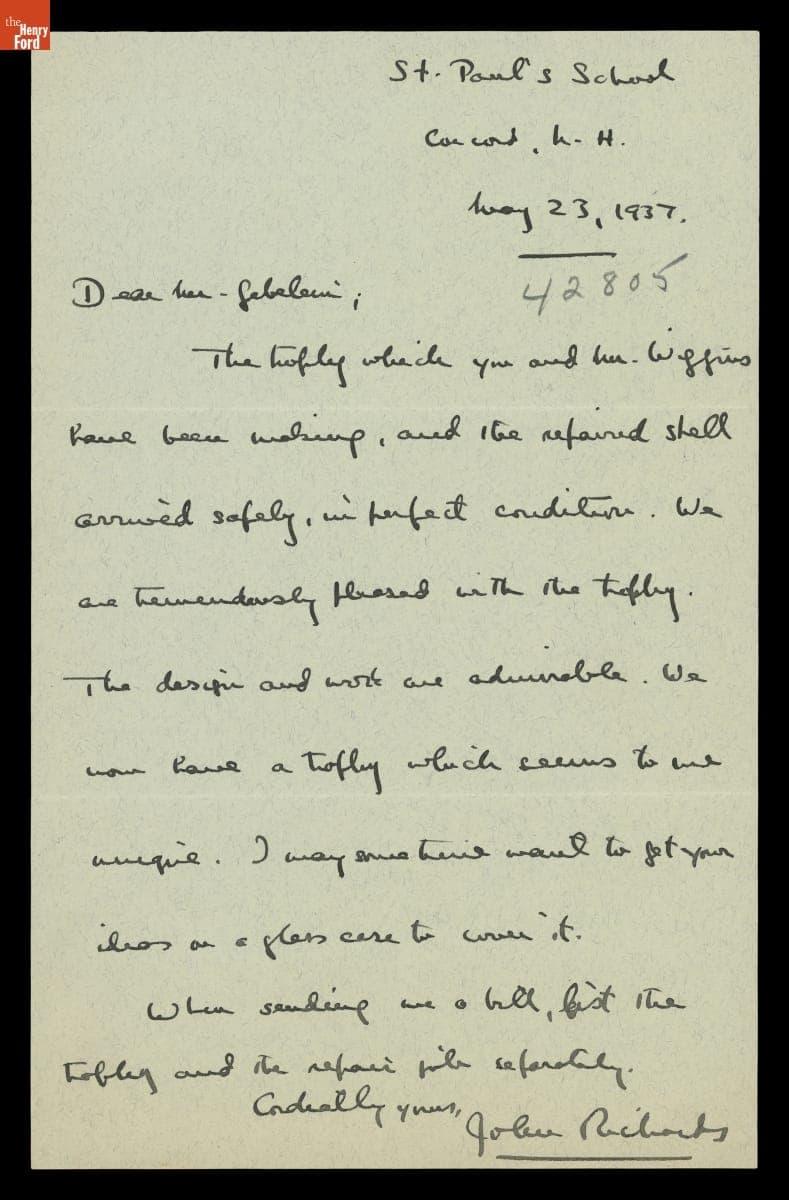 the
Henry
Ford
St. Paul's School
Concord, N. H.
May 23, 1937.
42805
Dear Mr. Gebelein;
The trophy which you and Mr. Wiggins
have been making, and the repaired shell
arrived safely, in perfect condition. We
are tremendously pleased with the trophy.
The design and work are admirable. We
now have a trophy which seems to me
unique. I may sometime want to get your
ideas on a glass case to cover it.
When sending me a bill, list the
trophy and the repair job separately.
Cordially yours,
John Richards